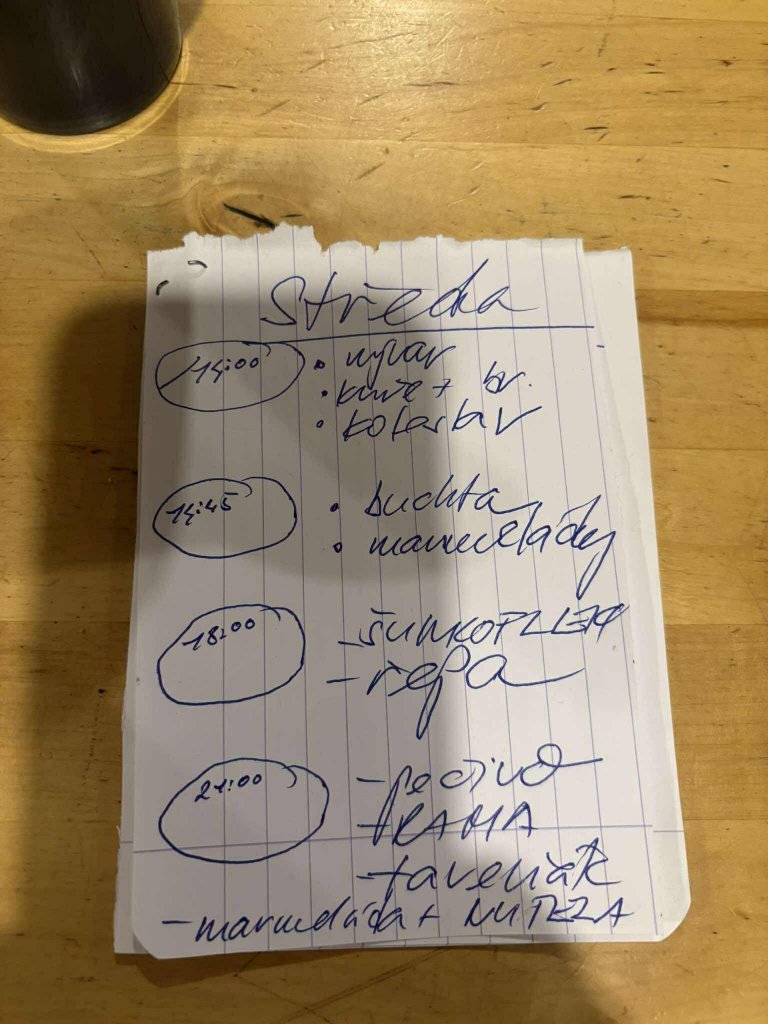 Středa
14:00 • vývar
• kuře + br.
• koleslav
14:45 • buchta
• marmelády
18:00 - ŠUNKOFLEKY
- řepa
21:00 - pečivo
- RAMA
- taveňák
- marmeláda + NUTELA